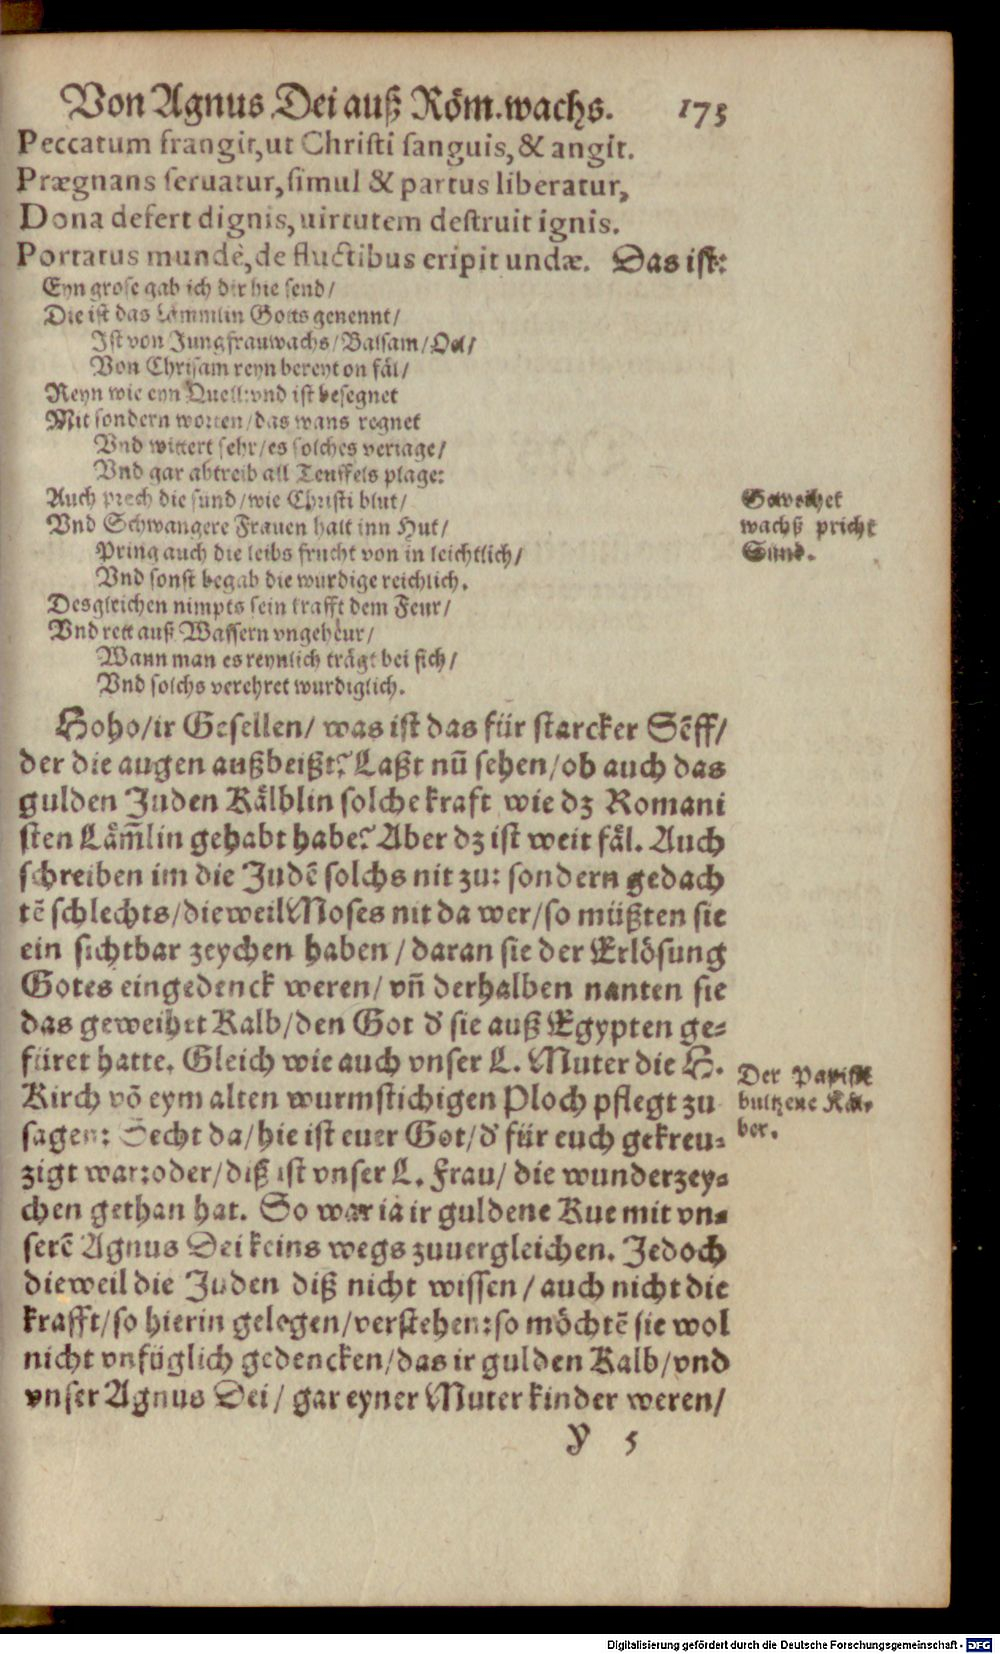 Von Agnus Dei auß Röm.wachs. 175
Peccatum frangit,ut Christi sanguis, & angit.
Prægnans seruatur,simul & partus liberatur,
Dona defert dignis, uirtutem destruit ignis.
Portatus mundè,de fluctibus eripit undæ. Das ist:
Eyn grose gab ich dir hie send/
Die ist das Lämmlin Gotts genennt/
Ist von Jungfrauwachs/Balsam/Oel/
Von Chrisam reyn bereyt on fäl/
Reyn wie eyn Quell:vnd ist besegnet
Mit sondern worten/das wans regnet
Vnd wittert sehr/es solches veriage/
Vnd gar abtreib all Teuffels plage:
Auch prech die sünd/wie Christi blut/
Vnd Schwangere Frauen halt inn Hut/
Pring auch die leibs frucht von in leichtlich/
Vnd sonst begab die wurdige reichlich.
Desgleichen nimpts sein krafft dem Feur/
Vnd rett auß Wassern vngeheur/
Wann man es reynlich trägt bei sich/
Vnd solchs verehret wurdiglich.
Geweihet
wachß pricht
Sünd.
Hoho/ir Gesellen/ was ist das für starcker Sẽff/
der die augen außbeißt? Laßt nũ sehen/ob auch das
gulden Juden Kälblin solche kraft wie dz Romani
sten Läm̃lin gehabt habe? Aber dz ist weit fäl. Auch
schreiben im die Judẽ solchs nit zu: sondern gedach
tẽ schlechts/dieweil Moses nit da wer/so müßten sie
ein sichtbar zeychen haben / daran sie der Erlösung
Gotes eingedenck weren/ vñ derhalben nanten sie
das geweihet Kalb/den Got d' sie auß Egypten ge=
füret hatte. Gleich wie auch vnser L. Muter die H.
Kirch võ eym alten wurmstichigen Ploch pflegt zu
sagen: Secht da/hie ist euer Got/d' für euch gekreu=
zigt war:oder/diß ist vnser L. Frau/ die wunderzey=
chen gethan hat. So war ia ir guldene Kue mit vn=
serẽ Agnus Dei keins wegs zuuergleichen. Jedoch
dieweil die Juden diß nicht wissen / auch nicht die
krafft/so hierin gelegen/verstehen:so möchtẽ sie wol
nicht vnfüglich gedencken/das ir gulden Kalb/vnd
vnser Agnus Dei/ gar eyner Muter kinder weren/
Der Papisten
hultzene Käl,
ber.
Y 5
Digitalisierung gefördert durch die Deutsche Forschungsgemeinschaft - DFG